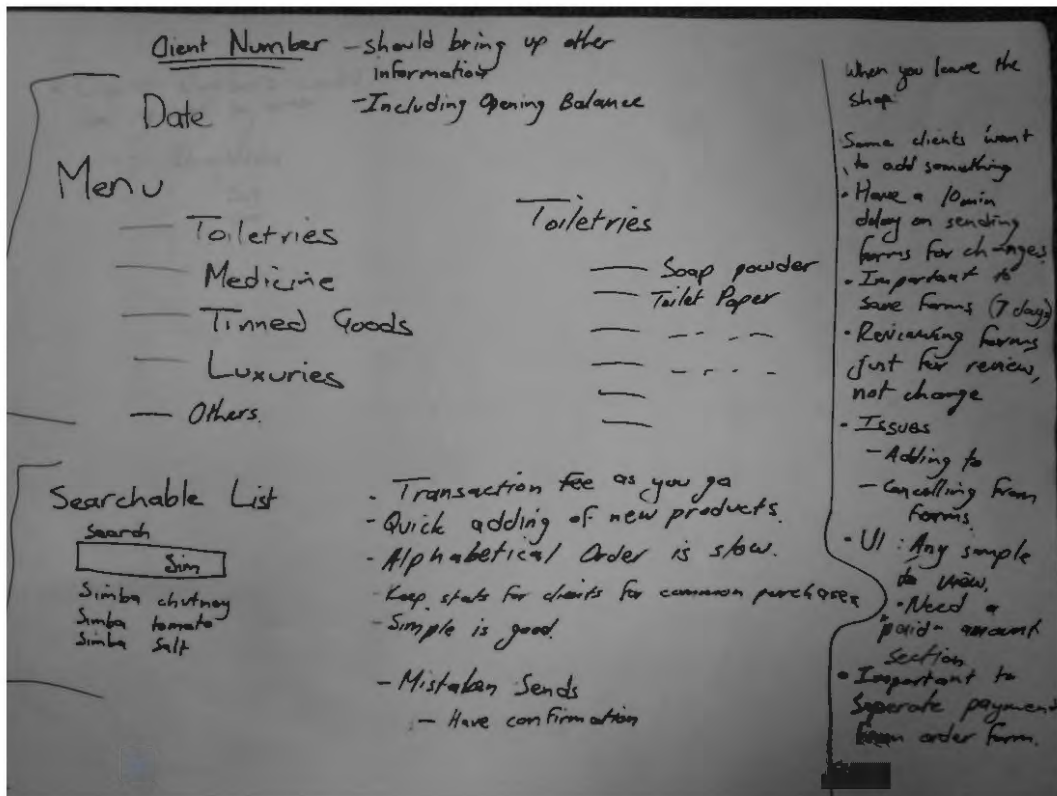 Client Number - should bring up other
information
- Including Opening Balance
Date
Menu
Toiletries
Medicine
Tinned Goods
Luxuries
Others.
Toiletries
Soap powder
Toilet Paper
Searchable List
Search
Sim
Simba chutney
Simba tomato
Simba Salt
- Transaction fee as you go
- Quick adding of new products.
- Alphabetical Order is slow.
- Keep stats for clients for common purchases
- Simple is good.
- Mistaken Sends
- Have confirmation
When you leave the
shop
Some clients want
to add something
• Have a 10min
delay on sending
forms for changes.
• Important to
save forms (7 days)
• Reviewing forms
just for review,
not change
• Issues
- Adding to
- Cancelling from
forms.
• UI : Any sample
to view.
• Need a
"paid" amount
section
• Important to
seperate payment
from order form.